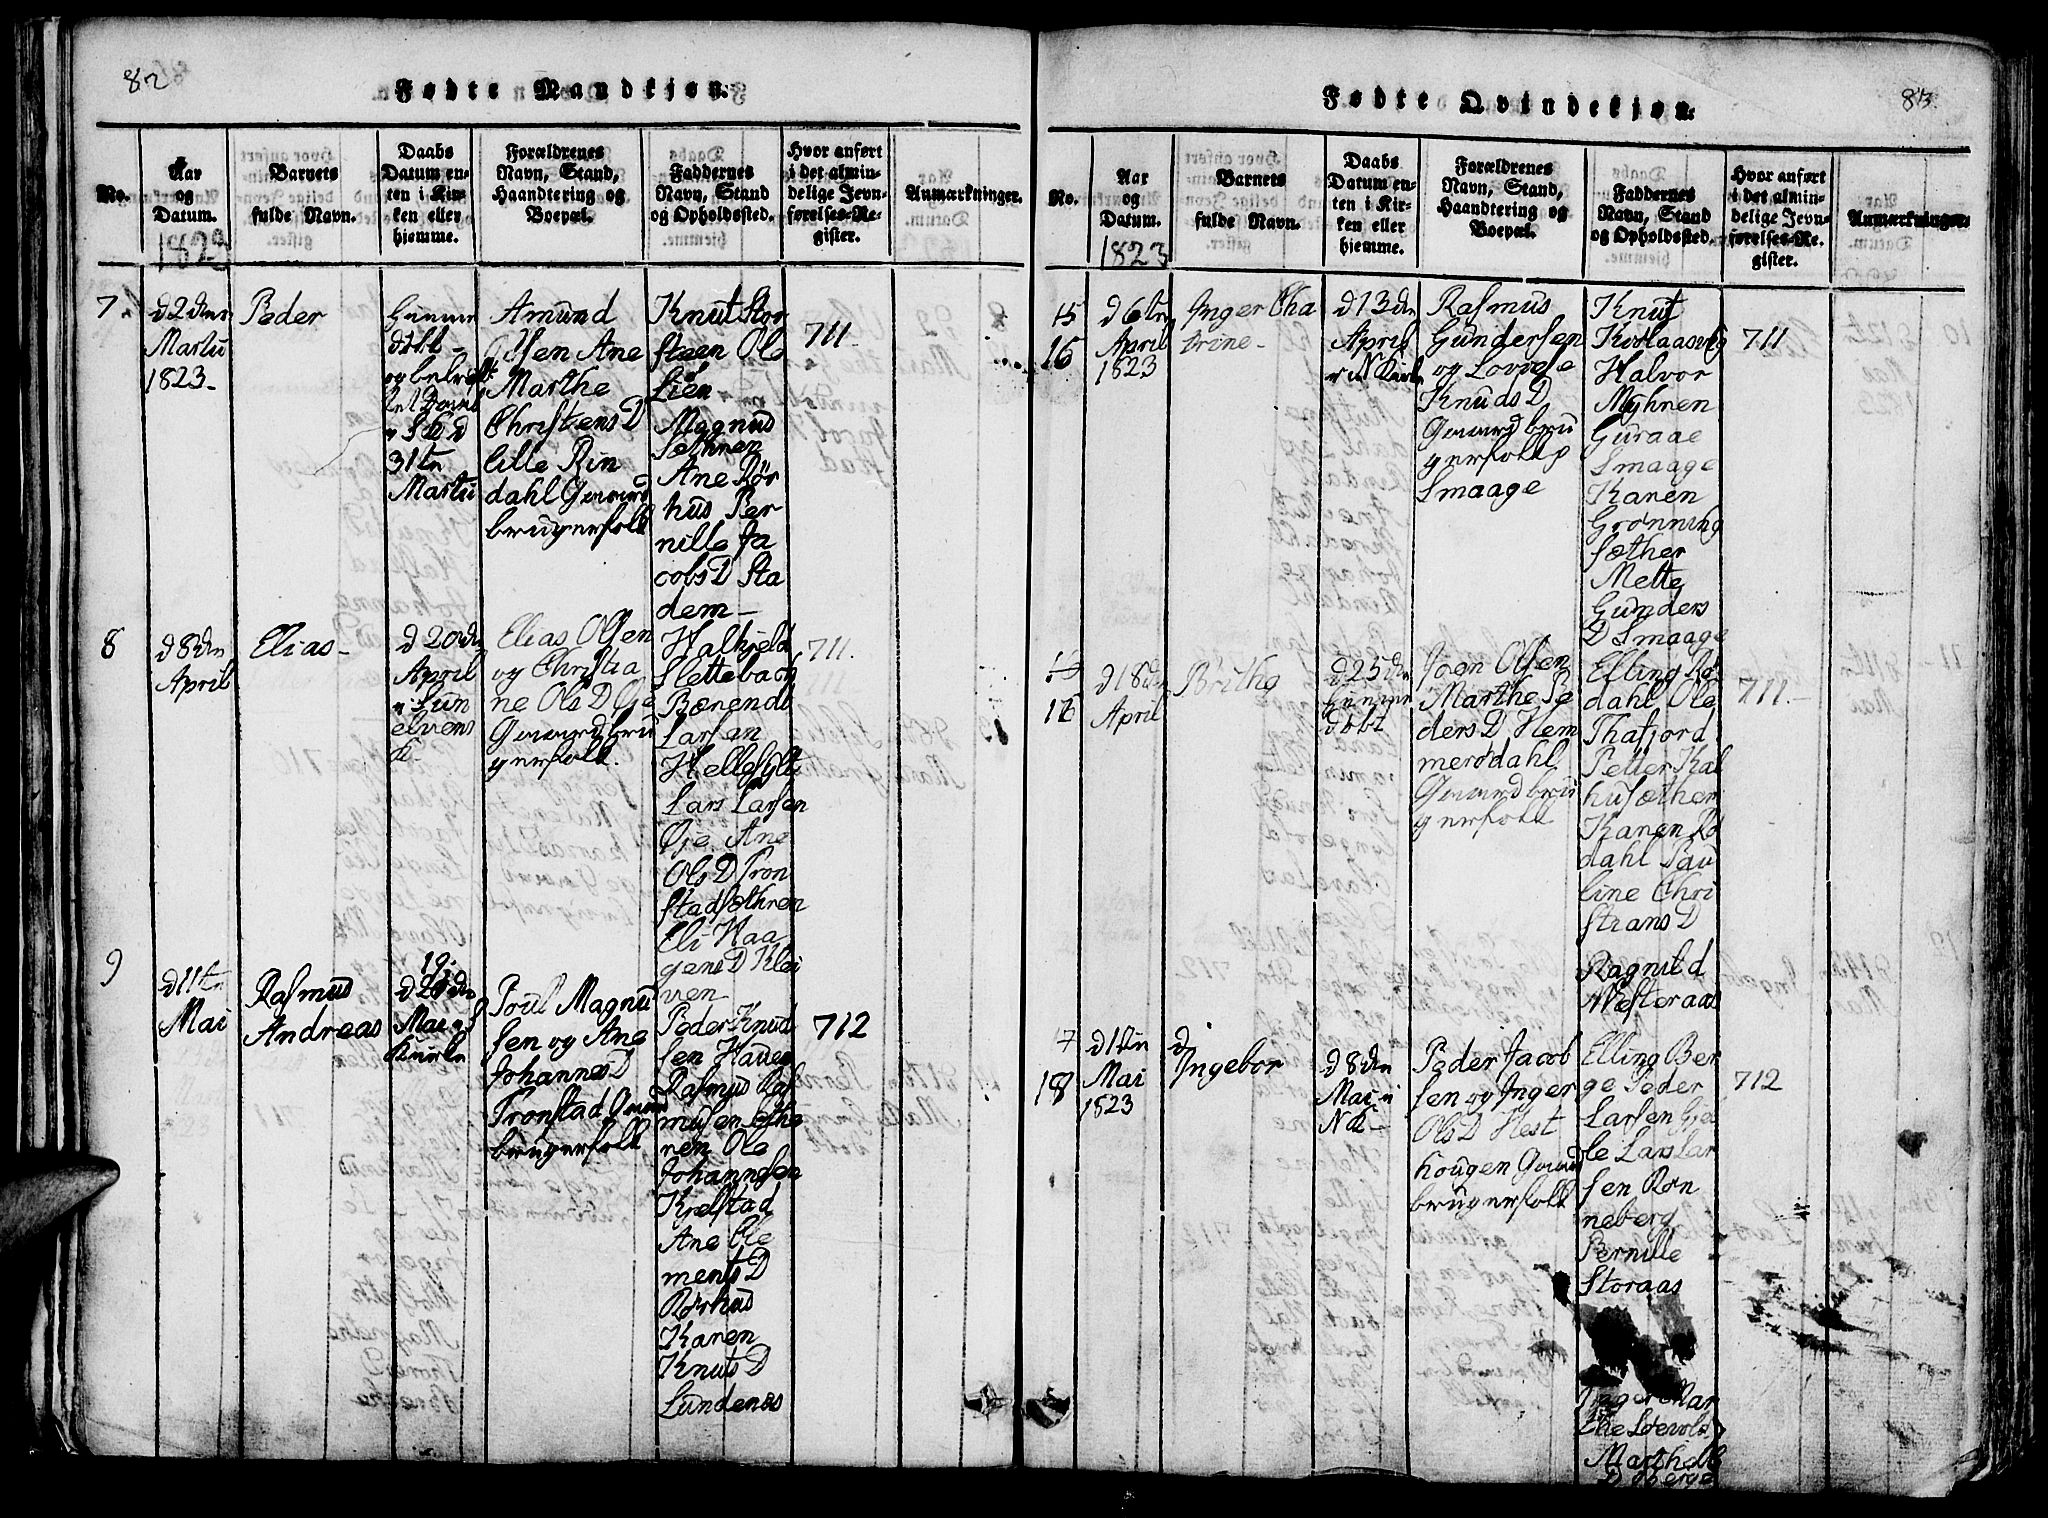 82
Fødte Mandkjøn.
No.
Aar
og
Datum.
1823
Barnets
fulde Navn.
Daabs
Datum en-
ten i Kir-
ken eller
hjemme.
Forældrenes
Navn, Stand,
Haandtering og
Boepæl.
Faddernes
Navn, Stand
og Opholdssted.
Hvor anført
i det almin-
delige Jevn-
førelses-Re-
gister.
Anmærkninger.
7
d 2den
Martii
1823-
Peder
hiemme
døbt -
31te
Martii
Amund
Olsen Ane
Marthe
Christens D
lille Rin
dahl Gaard
brugerfolk
Knut Stor
steen Ole
Lien
Magnus
Sæthren
Ane Rør
hus Per
nille Ja
cobs D Sta
dem-
711-
8
d 8den
April
Elias-
d 20de
April
i Sun
elvens
K-
Elias Olsen
og Christia
ne Ols D Øje
Gaardbru
gerfolk.
Halkjeld
Slettebach
Bærendt
Larsen
Hellesylt
Lars Larsen
Øje Ane
Ols D Tron
stadsæthren
Eli Haa
gens D Klei
ven
711.
9
d 11te
Mai
Rasmus
Andreas
19.
Mai
Kirke
Poul Magnu
sen og Ane
Johannes D
Tronstad Gaard
brugerfolk
Peder Knud
sen Haven
Rasmus Ras
musen Sæth
ren Ole
Johannsen
Kjelstad
Ane Cle
ments D
Rørhus
Karen
Knuts D
Lundenes
712
83.
Fødte Qvindekjøn.
No.
Aar
og
Datum.
1823
Barnets
fulde Navn.
Daabs
Datum en-
ten i Kir-
ken eller
hjemme.
Forældrenes
Navn, Stand,
Haandtering og
Boepæl.
Faddernes
Navn, Stand
og Opholdssted.
Hvor anført
i det almin-
delige Jevn-
førelses-Re-
gister.
Anmærkninger.
15
16
d 6te
April
1823
Inger Cha
trine-
d 13de
April
i N Kirke
Rasmus
Gundersen
og Lovise
Knuds D
Gaardbru
gerfolk
Smaage
Knut
Halvor
Myhren
Guraae
Smaage
Karen
Grønning
sæther
Mette
Gunders
D Smaage
711
16
d 18de
April
Brithe
d 25de
hiemme
døbt
Joen Olsen
Marthe Pe
ders D Hem
merødahl
Gaardbru
gerfolk
Elling Rø
dahl Ole
Thafjord
Petter Kal
husæther
Karen Rø
dahl Pau
line Chri
stians D
Ragnild
Westeraas
711.
17
18
d 1te
Mai
1823
Ingebor
d
d 8de
Mai i
N K-
Peder Jacob
sen og Inger
Ols D Hest
hougen Gaard
brugerfolk
Elling Ber
ge Peder
Larsen Gje
le Lars Lar
sen Røn
neberg
Pernille
Storaas
Inger Mar
the
Marthe
D Berge
712